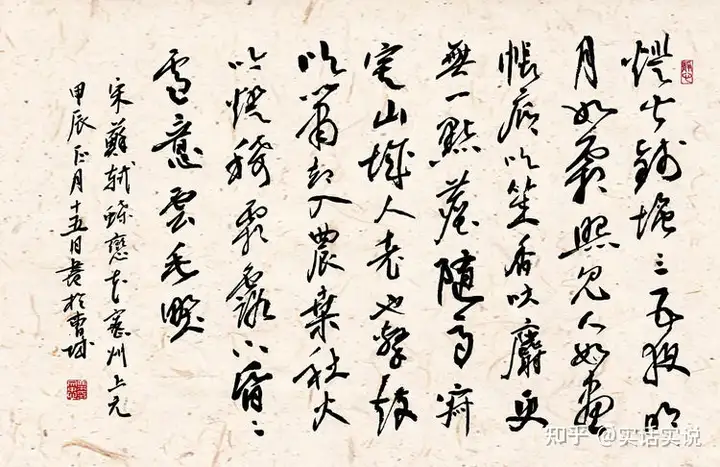 燈火錢塘三五夜明
月如霜照見人如畫
帳底吹笙香吐麝更
無一點塵隨馬寂
寞山城人老也擊鼓
吹簫却入農桑社火
冷燈稀霜露下昏〻
雪意雲垂野
宋蘇軾蝶戀花密州上元
甲辰正月十五日書於曹城
知乎 @实话实说